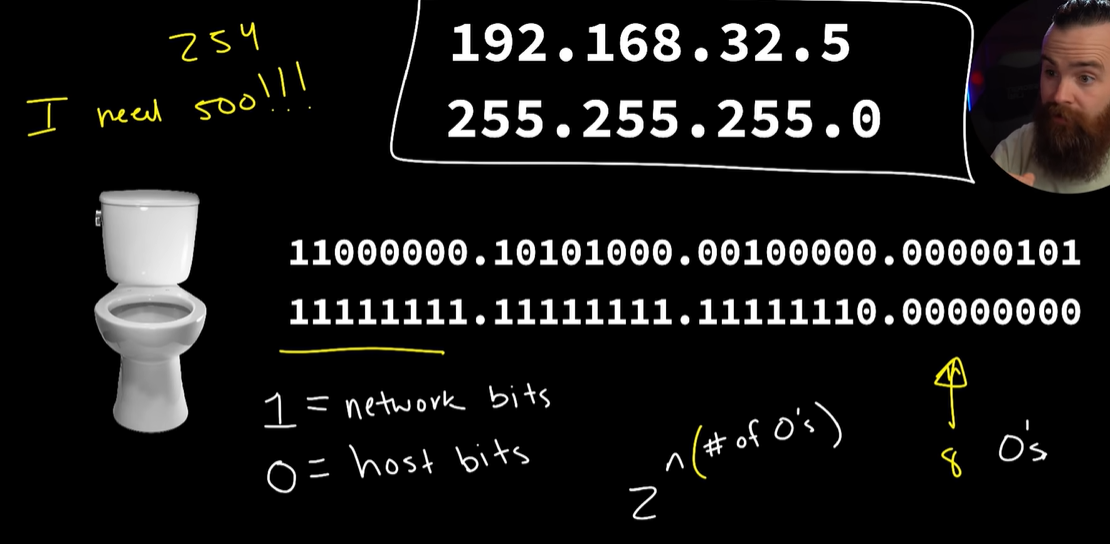 254
I need 500!!!
192.168.32.5
255.255.255.0
11000000.10101000.00100000.00000101
11111111.11111111.11111110.00000000
1 = network bits
0 = host bits
2^n(# of 0's)
8 0's